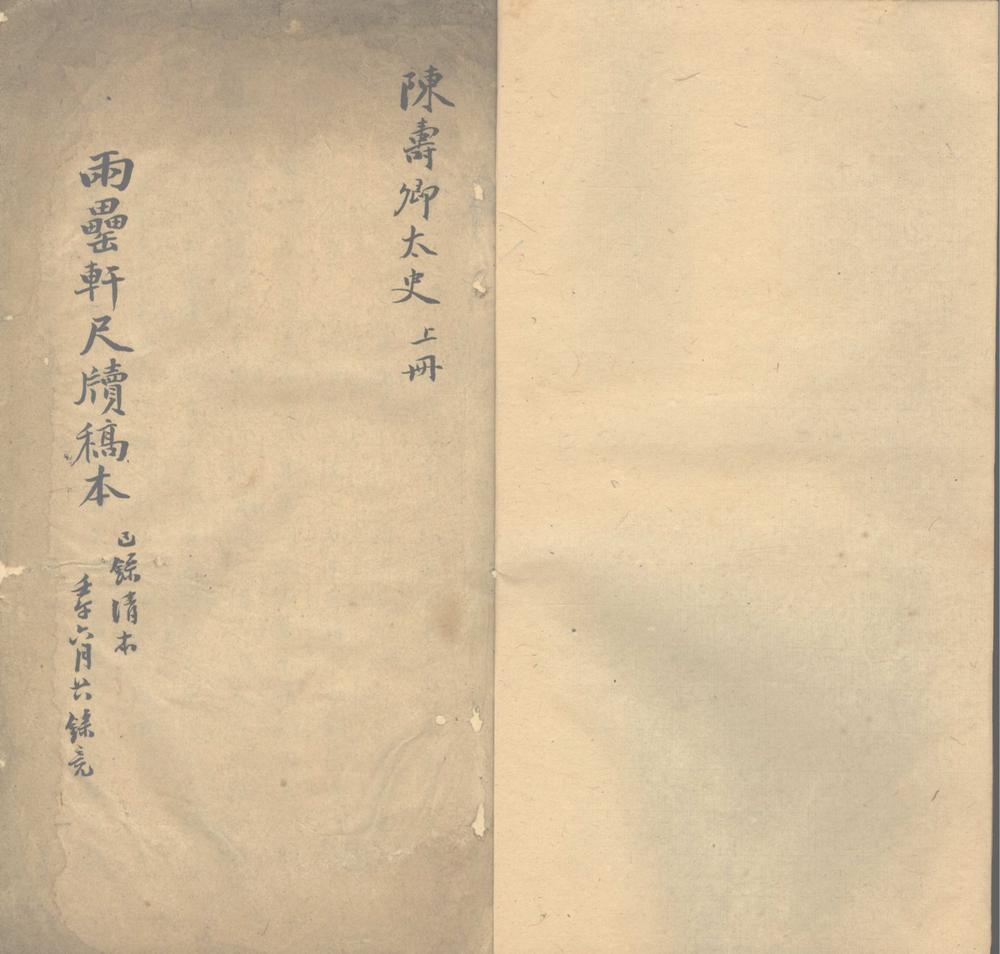 陳壽卿太史 上冊
兩罍軒尺牘稿本
已錄清本
壬午六月廿六錄竟